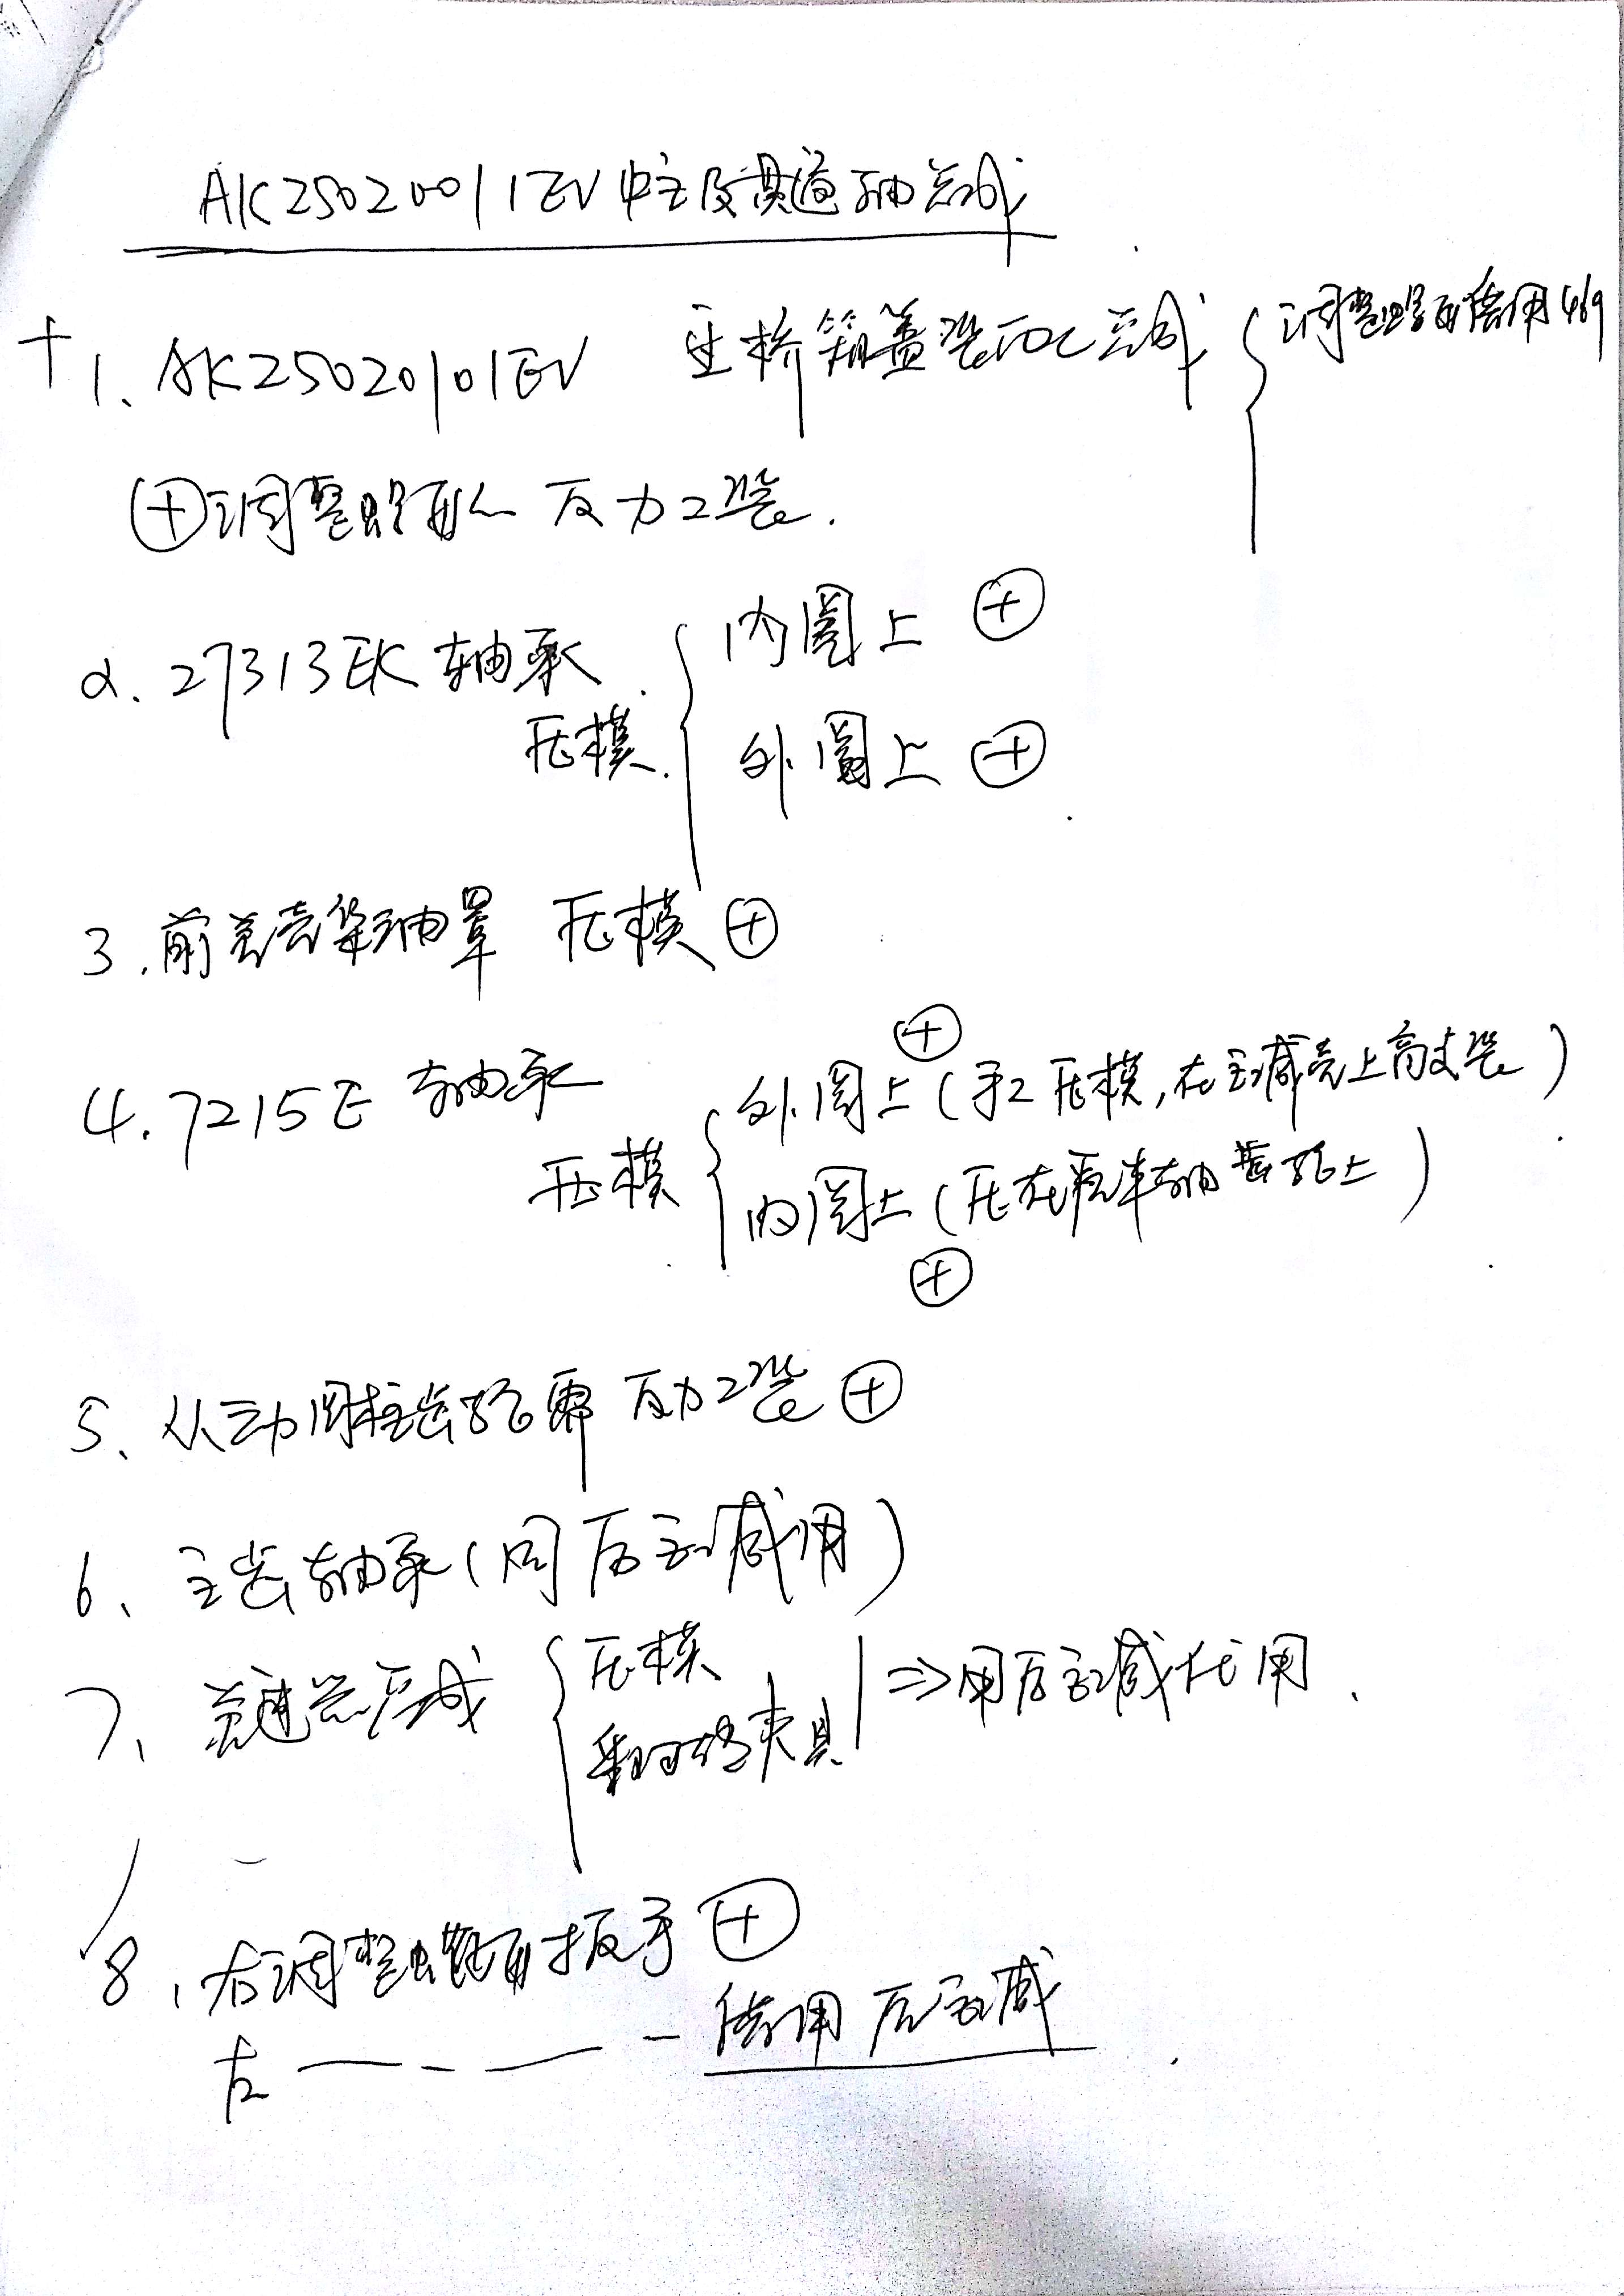 AK25020011EV中主及贯通轴总成
+ 1、AK25020101EV 桥箱盖装配总成 { 调整螺母借用469
⊕调整螺母 反力工装.
2. 27313EK 轴承 压模. { 内圈上 ⊕
外圈上 ⊕
3. 前 壳 轴罩 压模 ⊕
4. 7215E 轴承 压模 { 外圈上 (手工压模,在主减壳上 装) ⊕
内圈上 (压在 轴齿轮上) ⊕
5、从动圆柱齿轮 反力工装 ⊕
6、主齿轴承(同后主减用)
7、差速器总成 { 压模
翻转夹具 | ⇒用后主减代用.
8、右调整螺母扳手 ⊕
左 —— - —— - 借用后主减